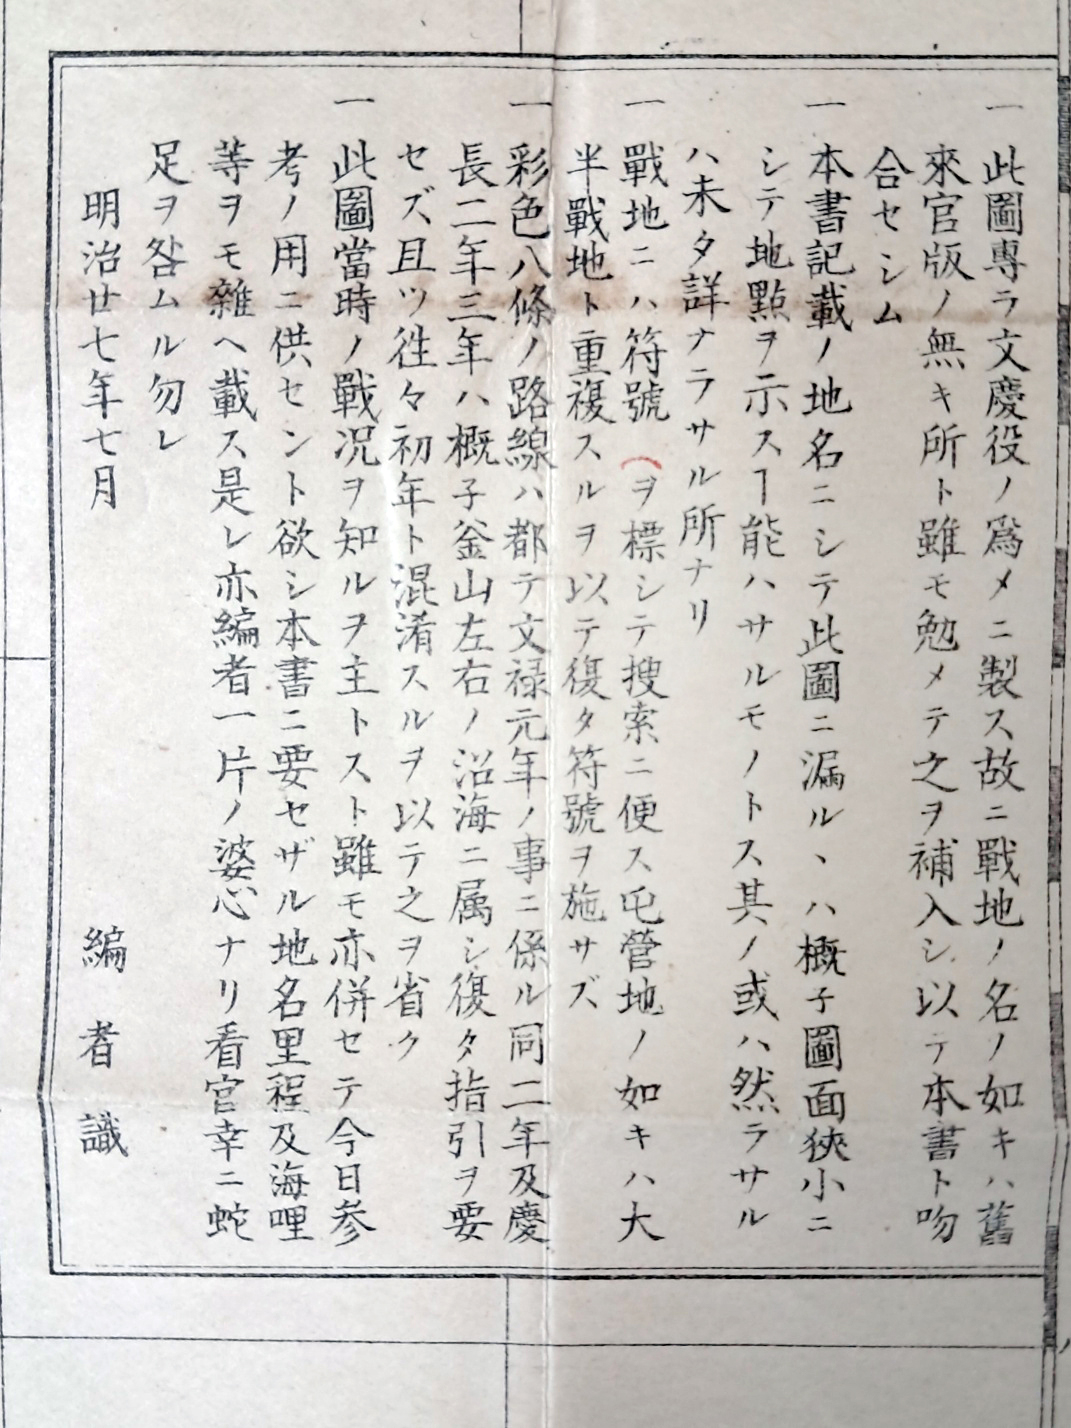 一 此圖專ラ文慶役ノ爲メニ製ス故ニ戰地ノ名ノ如キハ舊
來官版ノ無キ所ト雖モ勉メテ之ヲ補入シ以テ本書ト吻
合セシム
一 本書記載ノ地名ニシテ此圖ニ漏ルヽハ概子圖面狹小ニ
シテ地點ヲ示スヿ能ハサルモノトス其ノ或ハ然ラサル
ハ未タ詳ナラサル所ナリ
一 戰地ニハ符號 ( ヲ標シテ搜索ニ便ス屯營地ノ如キハ大
半戰地ト重複スルヲ以テ復タ符號ヲ施サズ
一 彩色八條ノ路線ハ都テ文禄元年ノ事ニ係ル同二年及慶
長二年三年ハ概子釜山左右ノ沿海ニ属シ復タ指引ヲ要
セズ且ツ徃々初年ト混淆スルヲ以テ之ヲ省ク
一 此圖當時ノ戰况ヲ知ルヲ主トスト雖モ亦併セテ今日参
考ノ用ニ供セント欲シ本書ニ要セザル地名里程及海哩
等ヲモ雜ヘ載ス是レ亦編者一片ノ婆心ナリ看官幸ニ蛇
足ヲ咎ムル勿レ
明治廿七年七月 編者識